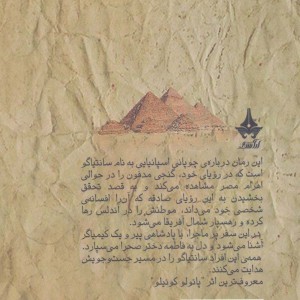 این رمان درباره‌ی چوپانی اسپانیایی به نام سانتیاگو
است که در رؤیای خود، گنجی مدفون را در حوالی
اهرام مصر مشاهده می‌کند و به قصد تحقق
بخشیدن به این رؤیای صادقه که آن‌را افسانه‌ی
شخصی خود می‌داند، موطنش را در آندلس رها
کرده و رهسپار شمال آفریقا می‌شود.
در این سفر پر ماجرا، با پادشاهی پیر و یک کیمیاگر
آشنا می‌شود و دل به فاطمه دختر صحرا می‌سپارد.
همه‌ی این افراد سانتیاگو را در مسیر جست‌وجویش
هدایت می‌کنند.
معروف‌ترین اثر "پائولو کوئیلو"